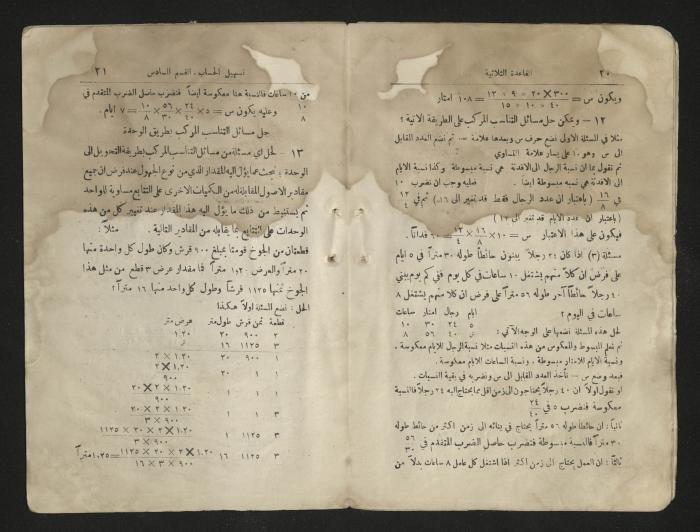 ٢٠ القاعدة الثلاثية
ويكون س = ٣٠٠ × ٢٠ × ٩ × ١٢ / ٤٠ × ١٠ × ١٥ = ١٠٨ امتار
١٢ – ويمكن حل مسائل التناسب المركب على الطريقة الاتية :
مثلا في المسئلة الاولى نضع حرف س وبعدها علامة = ثم نضع العدد المقابل
الى س وهو ١٠ على يسار علامة التساوي
ثم نقول بما ان نسبة الرجال الى الافدنة هي نسبة مبسوطة وكذا نسبة الايام
الى الافدنة هي نسبة مبسوطة ايضاً . فعليه وجب ان نضرب ١٠
في ١٦/٨ ( باعتبار ان عدد الرجال فقط قد تغير الى ١٦ ) ثم في ١٢/٤
( باعتبار ان عدد الايام قد تغير الى ١٢ )
فيكون على هذا الاعتبار س = ١٠ × ١٦/٨ × ١٢/٤ = ٦٠ فداناً .
مسئلة (٢) اذا كان ٢٤ رجلاً يبنون حائطاً طوله ٣٠ متراً في ٥ ايام
على فرض ان كلاً منهم يشتغل ١٠ ساعات في كل يوم ففي كم يوم يبني
٤٠ رجلاً حائطاً آخر طوله ٥٦ متراً على فرض ان كلا منهم يشتغل ٨
ساعات في اليوم ؟ ايام رجال امتار ساعات
٥ ٢٤ ٣٠ ١٠
لحل هذه المسئلة نضعها على الوجه الآتي : س ٤٠ ٥٦ ٨
ثم نعلم المبسوط والمعكوس من هذه النسبات مثلا نسبة الرجال للايام معكوسة .
ونسبة الايام للامتار مبسوطة . ونسبة الساعات الايام معكوسة .
فبعد وضع س = نأخذ العدد المقابل الى س ونضربه في بقية النسبات .
او نقول اولاً ان ٤٠ رجلاً يحتاجون الى زمن اقل مما يحتاج اليه ٢٤ رجلاً فالنسبة
معكوسة فنضرب ٥ في ٢٤/٤٠
ثانياً : ان حائطاً طوله ٥٦ متراً يحتاج في بنائه الى زمن اكثر من حائط طوله
٣٠ متراً فالنسبة مبسوطة فنضرب حاصل الضرب المتقدم في ٥٦/٣٠
ثالثاً : ان العمل يحتاج الى زمن اكثر اذا اشتغل كل عامل ٨ ساعات بدلاً من
تسهيل الحساب . القسم السادس ٢١
من ١٠ ساعات فالنسبة هنا معكوسة ايضاً فنضرب حاصل الضرب المتقدم في
١٠/٨ وعليه يكون س = ٥ × ٢٤/٤٠ × ٥٦/٣٠ × ١٠/٨ = ٧ ايام .
حل مسائل التناسب المركب بطريق الوحدة
١٣ – لحل اي مسئلة من مسائل التناسب المركب بطريقة التحويل الى
الوحدة ؛ يبحث عما يؤل اليه المقدار الذي من نوع المجهول عند فرض ان جميع
مقادير الاصول المقابلة له من الكميات الاخرى على التتابع مساوية للواحد
ثم يستنبط من ذلك ما يؤل اليه هذا المقدار عند تغيير كل من هذه
الوحدات على التتابع بما يقابله من المقادير التالية . مثلاً :
قطعتان من الجوخ قومتا بمبلغ ٩٠٠ قرش وكان طول كل واحدة منها
٢٠ متراً والعرض ١٫٢٠ متراً فما مقدار عرض ٣ قطع من مثل هذا
الجوخ ثمنها ١١٢٥ قرشاً وطول كل واحد منها ١٦ متراً ؟
الحل : نضع المسئلة اولاً هكذا
قطعة ثمن قرش طول متر عرض متر
٢ ٩٠٠ ٢٠ ١٫٢٠
٣ ١١٢٥ ١٦ س
١ ٩٠٠ ٢٠ ١٫٢٠ × ٢
١ ١ ٢٠ ١٫٢٠ × ٢ / ٩٠٠
١ ١ ١ ١٫٢٠ × ٢ × ٢٠ / ٩٠٠
٣ ١ ١ ١٫٢٠ × ٢ × ٢٠ / ٩٠٠ × ٣
٣ ١١٢٥ ١ ١٫٢٠ × ٢ × ٢٠ × ١١٢٥ / ٩٠٠ × ٣
٣ ١١٢٥ ١٦ ١٫٢٠ × ٢ × ٢٠ × ١١٢٥ / ٩٠٠ × ٣ × ١٦ = ١٫٢٥ متراً